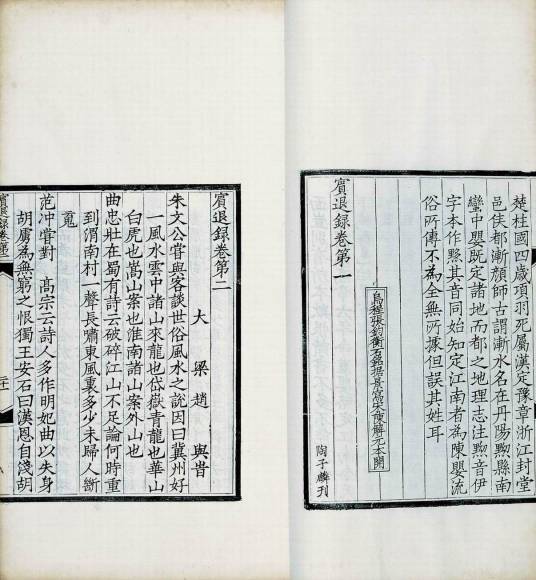 楚柱國四歲項羽死屬漢定豫章浙江封堂
邑侯都漸顏師古謂漸水名在丹陽黟縣南
蠻中嬰既定諸地而都之地理志注黟音伊
字本作黝其音同始知定江南者為陳嬰流
俗所傳不為全無所據但誤其姓耳
賓退錄卷第一
烏程張鈞衡石銘据景寫宋解元本開
陶子麟刊
賓退錄卷第二
大梁趙與旹
朱文公嘗與客談世俗風水之說因曰冀州好
一風水雲中諸山來龍也岱嶽青龍也華山
白虎也嵩山案也淮南諸山案外山也
曲忠壯在蜀有詩云破碎江山不足論何時重
到渭南村一聲長嘯東風裏多少未歸人斷
䰟
范冲嘗對 高宗云詩人多作明妃曲以失身
胡虜為無窮之恨獨王安石曰漢恩自淺胡
賓退錄卷第